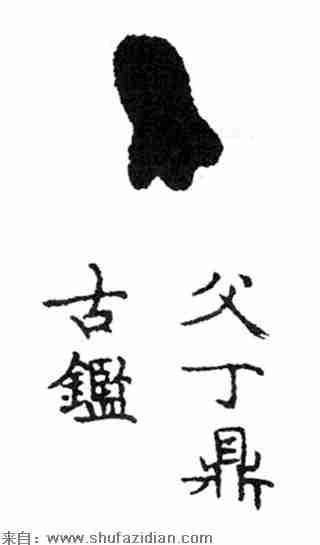 父丁鼎
古鑑
来自：www.shufazidian.com